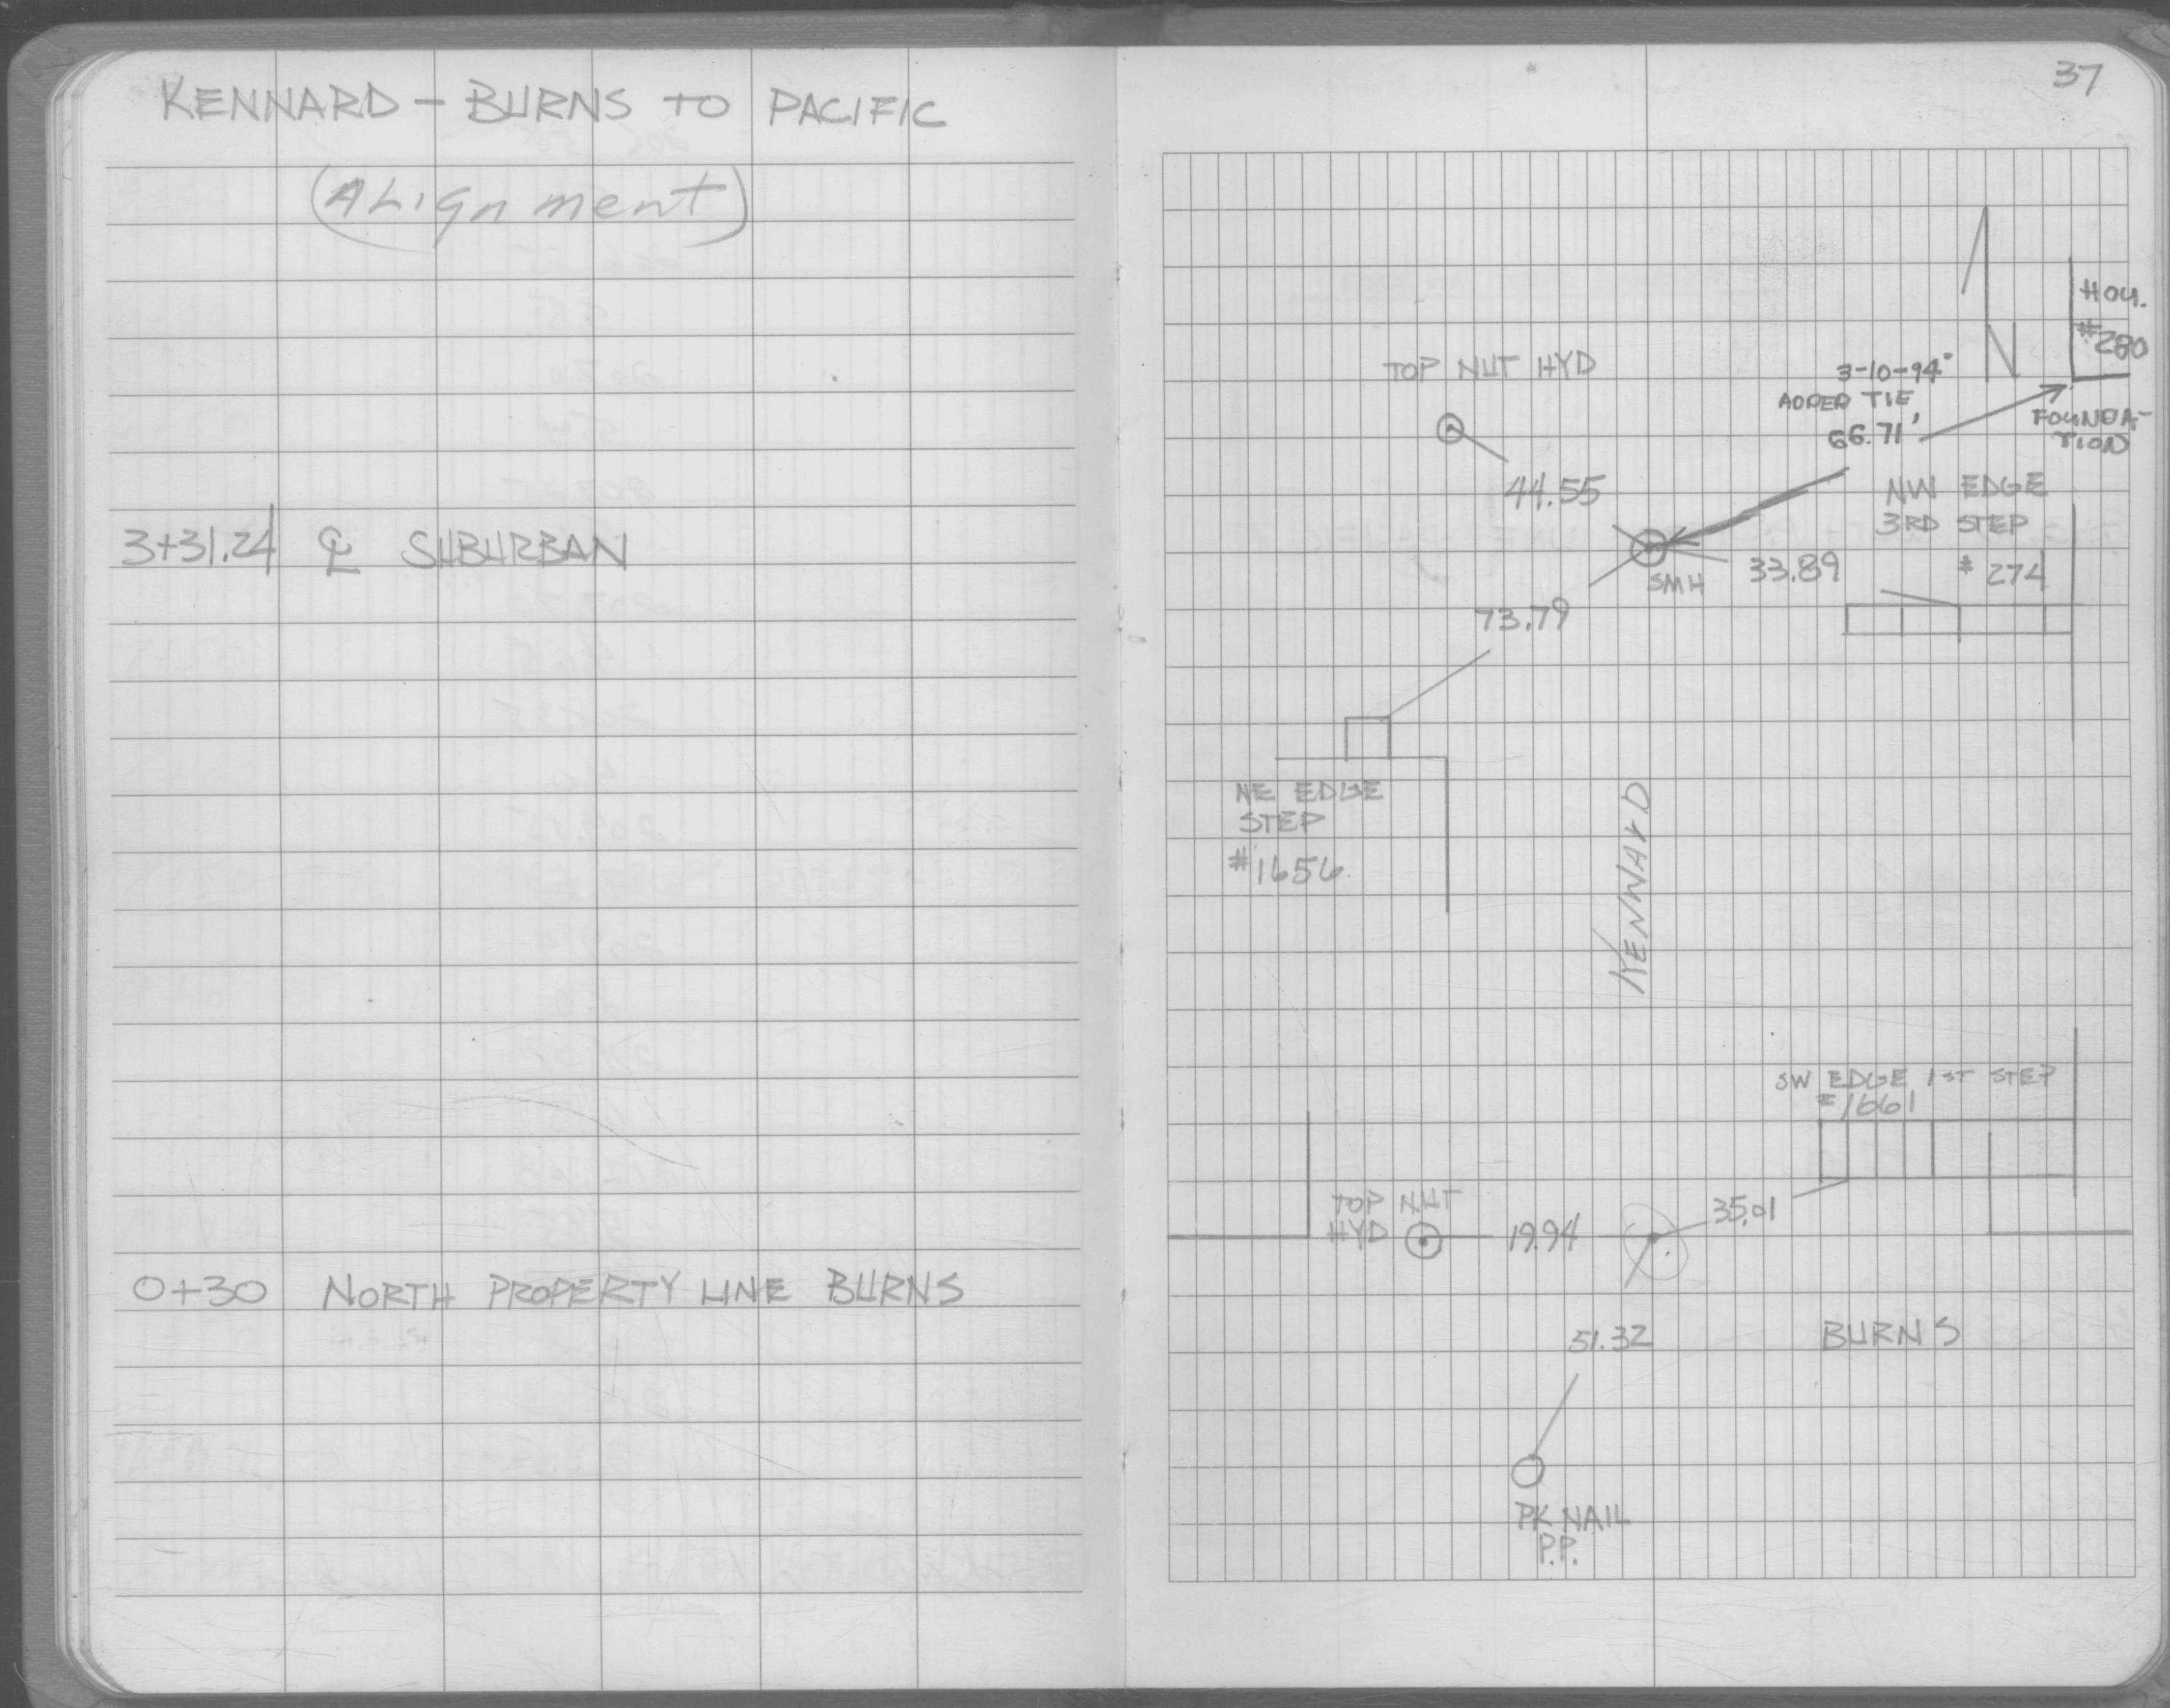 KENNARD - BURNS TO PACIFIC
(ALignment)
3+31.24 ℄ SUBURBAN
0+30 NORTH PROPERTY LINE BURNS
37
HOU.
#280
TOP NUT HYD
3-10-94
ADDED TIE
66.71'
FOUNDA-
TION
44.55
NW EDGE
3RD STEP
#274
SMH
33.89
73.79
NE EDGE
STEP
#1656
KENNARD
SW EDGE 1ST STEP
#1661
TOP NUT
HYD
19.94
35.01
51.32
BURNS
PK NAIL
P.P.